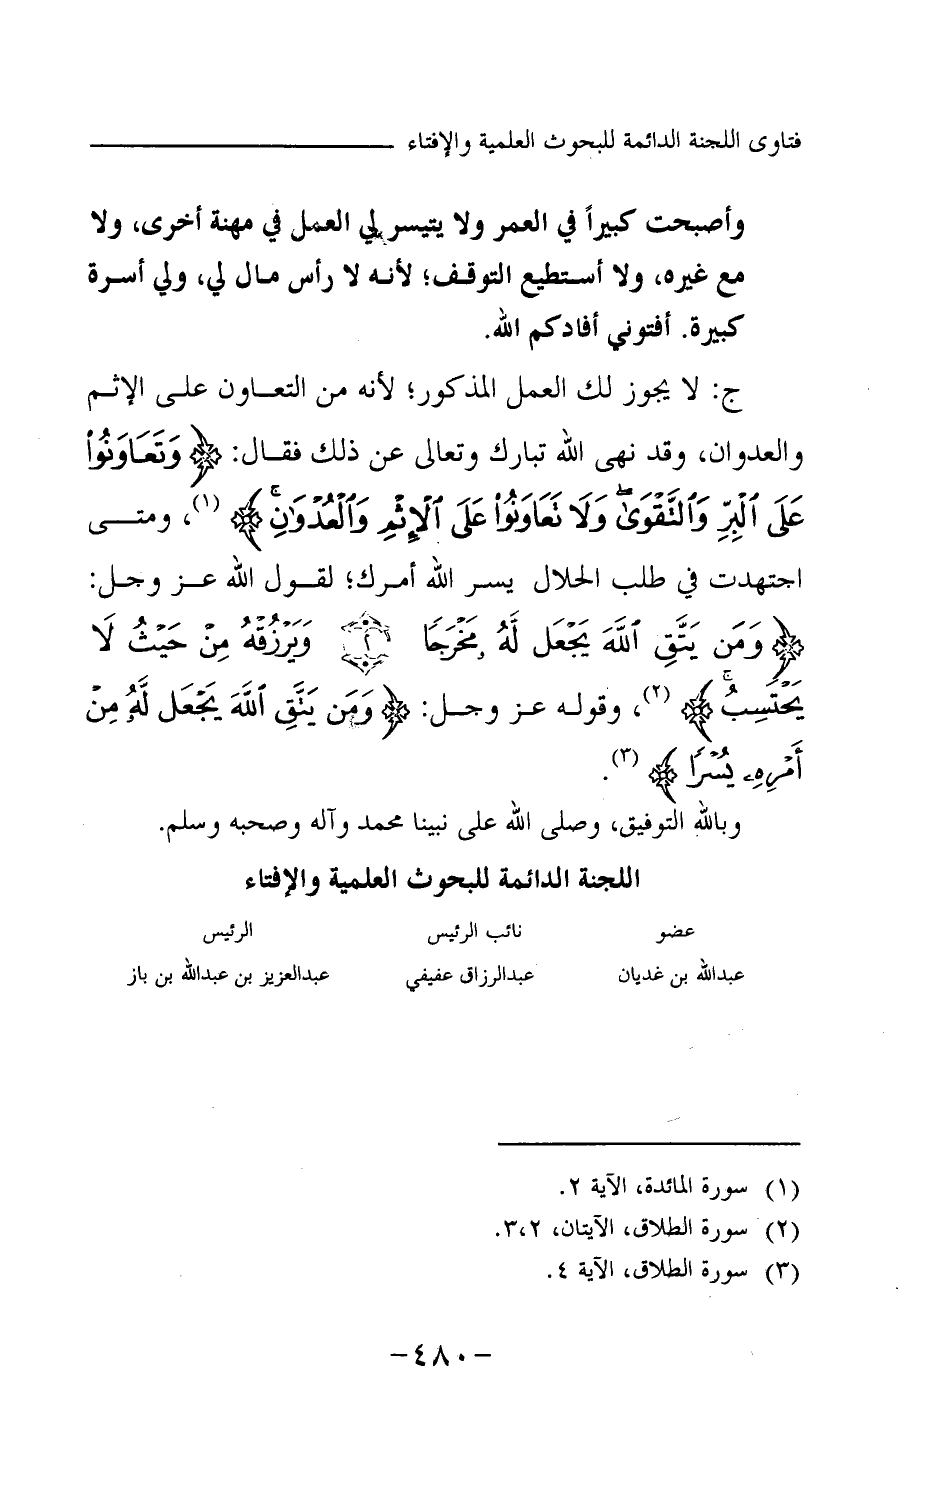 فتاوى اللجنة الدائمة للبحوث العلمية والإفتاء
وأصبحت كبيراً في العمر ولا يتيسر لي العمل في مهنة أخرى، ولا
مع غيره، ولا أستطيع التوقف؛ لأنه لا رأس مال لي، ولي أسرة
كبيرة. أفتوني أفادكم الله.
ج: لا يجوز لك العمل المذكور؛ لأنه من التعاون على الإثم
والعدوان، وقد نهى الله تبارك وتعالى عن ذلك فقال: ﴿وَتَعَاوَنُوا۟
عَلَى ٱلْبِرِّ وَٱلتَّقْوَىٰ ۖ وَلَا تَعَاوَنُوا۟ عَلَى ٱلْإِثْمِ وَٱلْعُدْوَٰنِ ۚ﴾ (١)، ومتى
اجتهدت في طلب الحلال يسر الله أمرك؛ لقول الله عز وجل:
﴿وَمَن يَتَّقِ ٱللَّهَ يَجْعَل لَّهُۥ مَخْرَجًا ٢ وَيَرْزُقْهُ مِنْ حَيْثُ لَا
يَحْتَسِبُ ۚ﴾ (٢)، وقوله عز وجل: ﴿وَمَن يَتَّقِ ٱللَّهَ يَجْعَل لَّهُۥ مِنْ
أَمْرِهِۦ يُسْرًا﴾ (٣).
وبالله التوفيق، وصلى الله على نبينا محمد وآله وصحبه وسلم.
اللجنة الدائمة للبحوث العلمية والإفتاء
عضو نائب الرئيس الرئيس
عبدالله بن غديان عبدالرزاق عفيفي عبدالعزيز بن عبدالله بن باز
(١) سورة المائدة، الآية ٢.
(٢) سورة الطلاق، الآيتان، ٣،٢.
(٣) سورة الطلاق، الآية ٤.
-٤٨٠-